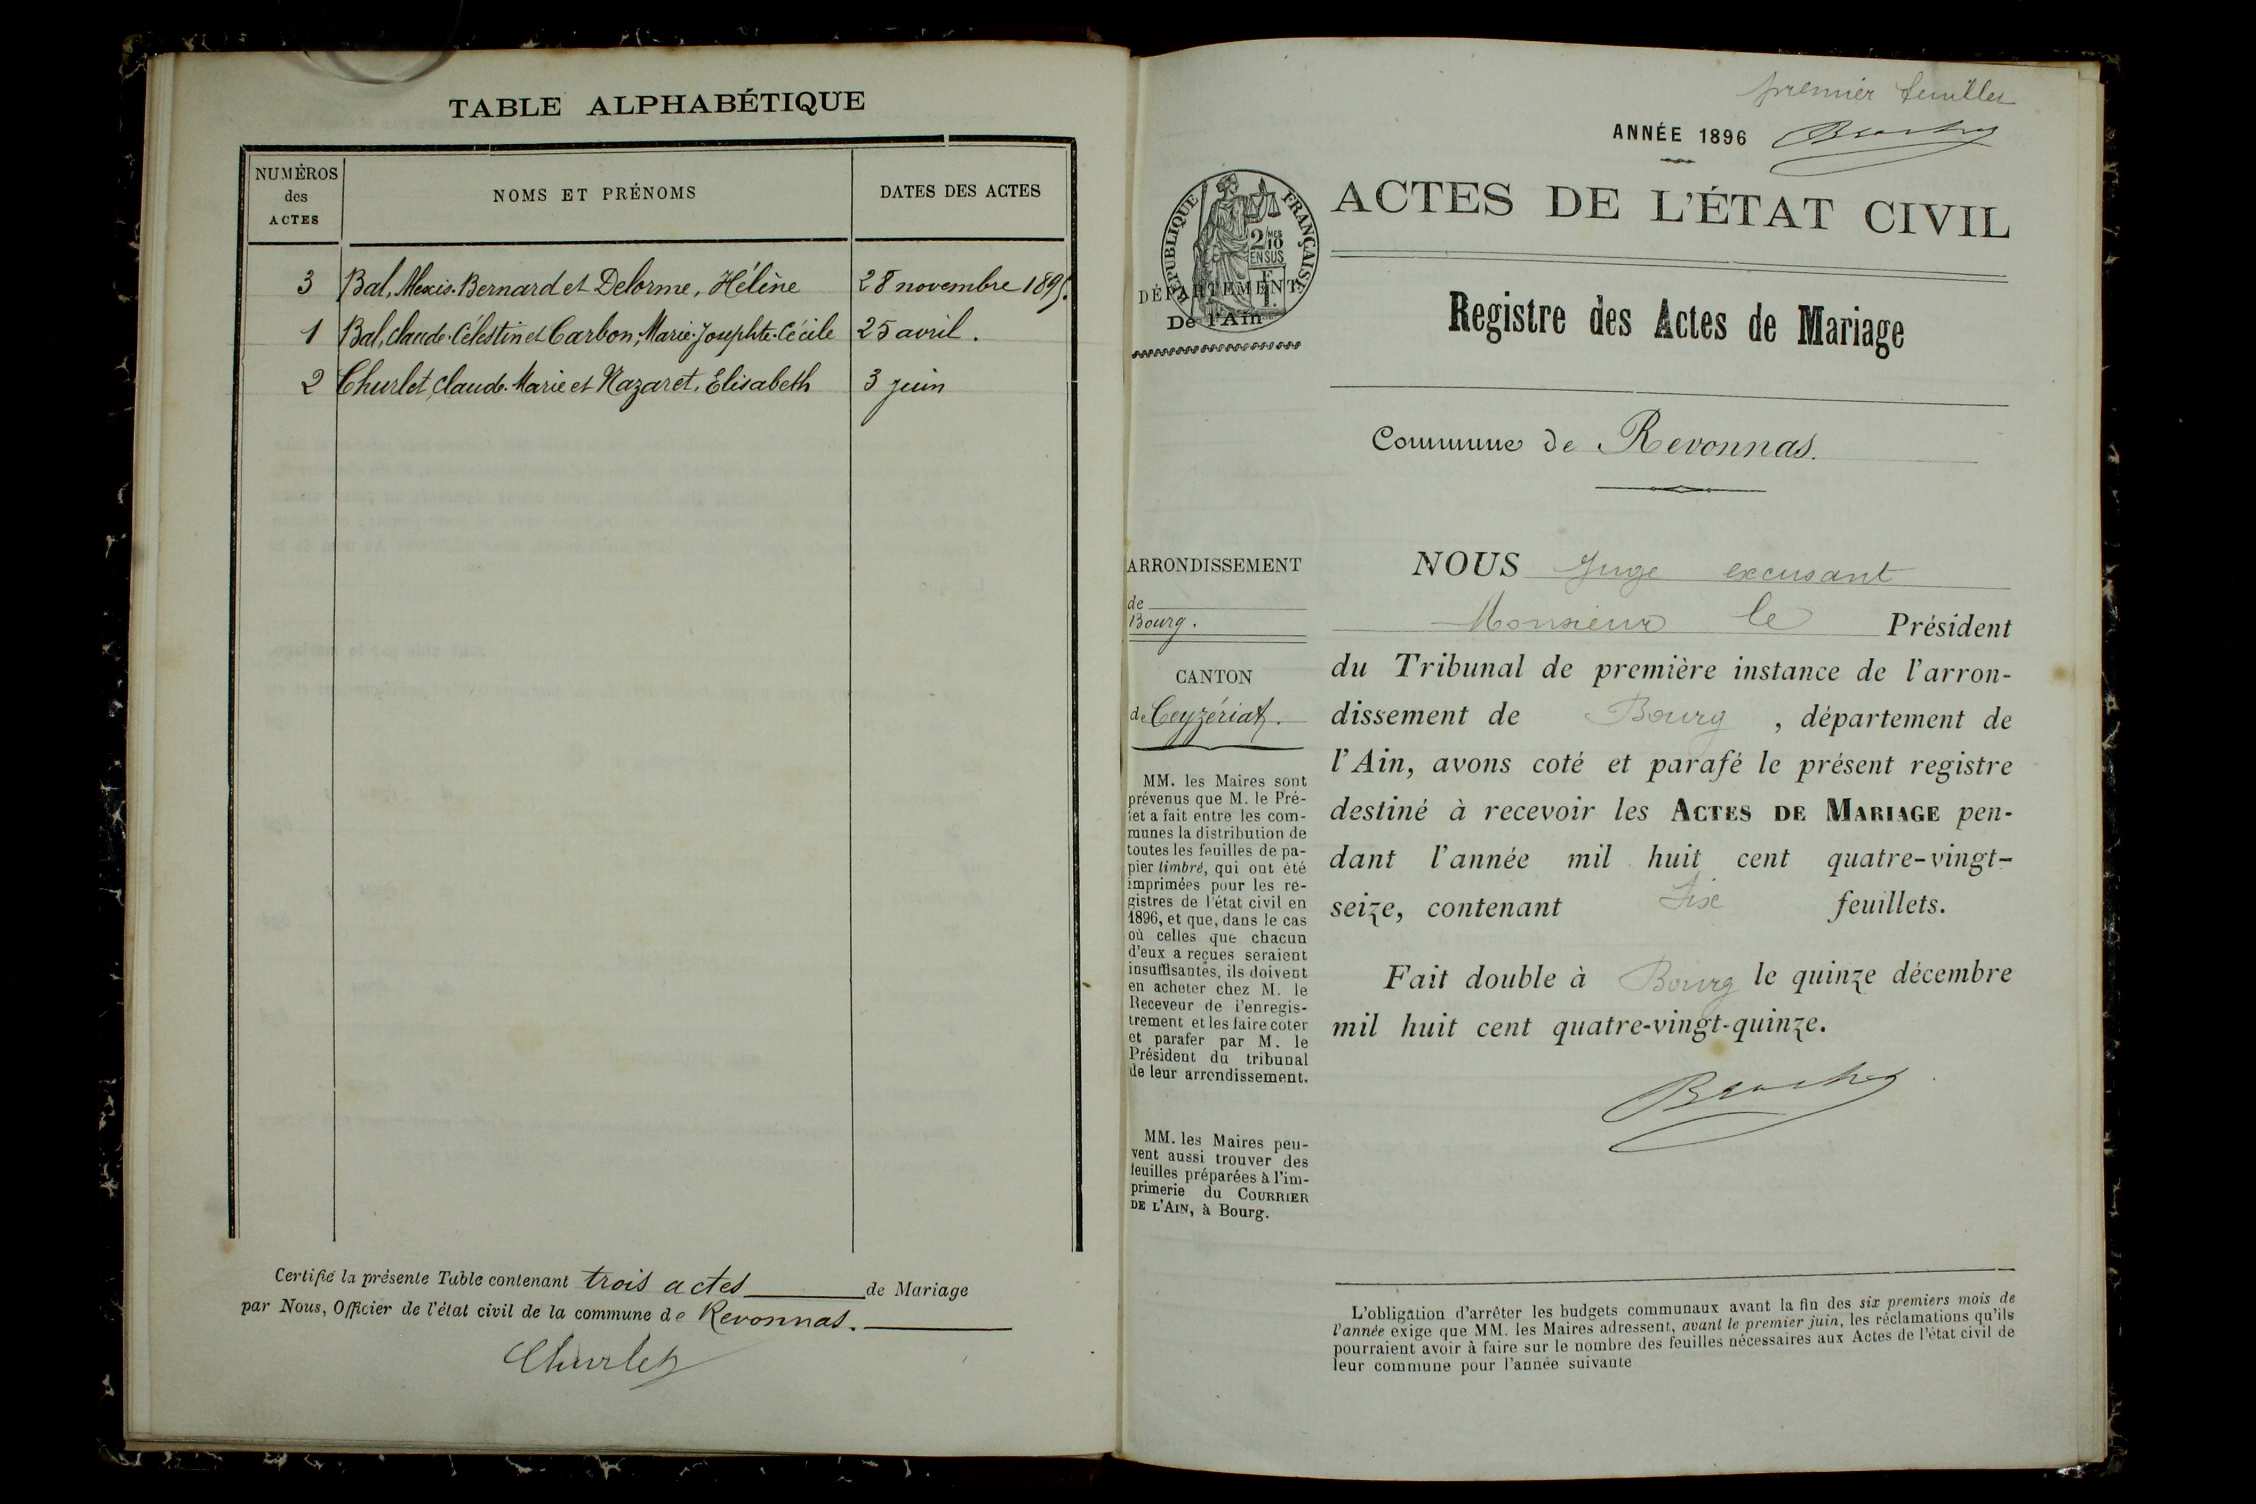 TABLE ALPHABÉTIQUE
NUMÉROS
des
ACTES
NOMS ET PRÉNOMS
DATES DES ACTES
3 Bal, Alexis-Bernard et Delorme, Hélène 28 novembre 1895.
1 Bal, Claude-Célestin et Carbon, Marie-Josephte-Cécile 25 avril.
2 Churlet, Claude-Marie et Nazaret, Elisabeth 3 juin
Certifié la présente Table contenant trois actes de Mariage
par Nous, Officier de l'état civil de la commune de Revonnas.
Churlet
premier feuillet
ANNÉE 1896
RÉPUBLIQUE FRANÇAISE
2/10 MES
EN SUS
DÉPARTEMENT
De l'Ain
ACTES DE L'ÉTAT CIVIL
Registre des Actes de Mariage
Commune de Revonnas.
ARRONDISSEMENT
de
Bourg.
CANTON
de Ceyzériat.
MM. les Maires sont
prévenus que M. le Pré-
fet a fait entre les com-
munes la distribution de
toutes les feuilles de pa-
pier timbré, qui ont été
imprimées pour les re-
gistres de l'état civil en
1896, et que, dans le cas
où celles que chacun
d'eux a reçues seraient
insuffisantes, ils doivent
en acheter chez M. le
Receveur de l'enregis-
trement et les faire coter
et parafer par M. le
Président du tribunal
de leur arrondissement.
MM. les Maires peu-
vent aussi trouver des
feuilles préparées à l'im-
primerie du COURRIER
DE L'AIN, à Bourg.
NOUS Juge excusant
Monsieur le Président
du Tribunal de première instance de l'arron-
dissement de Bourg, département de
l'Ain, avons coté et parafé le présent registre
destiné à recevoir les ACTES DE MARIAGE pen-
dant l'année mil huit cent quatre-vingt-
seize, contenant Six feuillets.
Fait double à Bourg le quinze décembre
mil huit cent quatre-vingt-quinze.
L'obligation d'arrêter les budgets communaux avant la fin des six premiers mois de
l'année exige que MM. les Maires adressent, avant le premier juin, les réclamations qu'ils
pourraient avoir à faire sur le nombre des feuilles nécessaires aux Actes de l'état civil de
leur commune pour l'année suivante